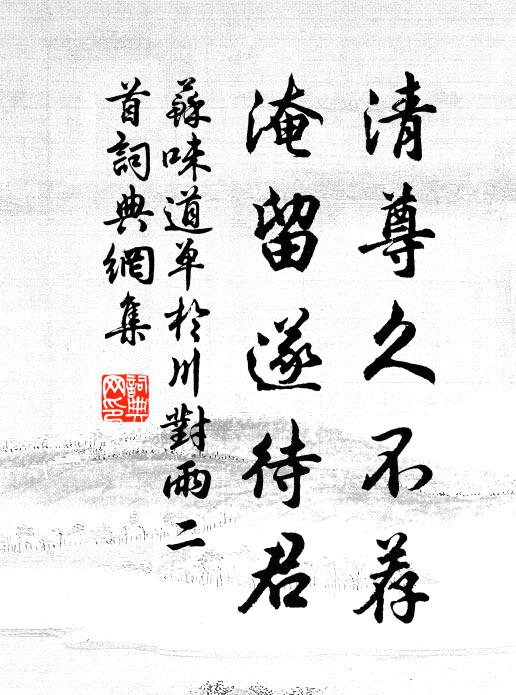 清尊久不荐
淹留遂待君
蘇味道单於川對雨二
首詞典網集
詞典
网印